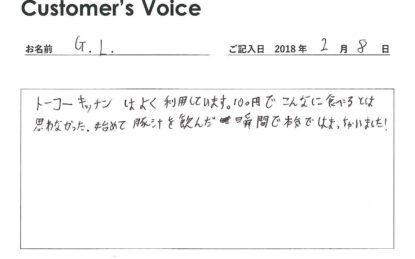 Customer's Voice
お名前 G.L. ご記入日 2018年 2月 8日
トーコーキッチンはよく利用しています。100円でこんなに食べるとは
思わなかった。始めて豚汁を飲んだ瞬間で本気ではまっちゃいました!